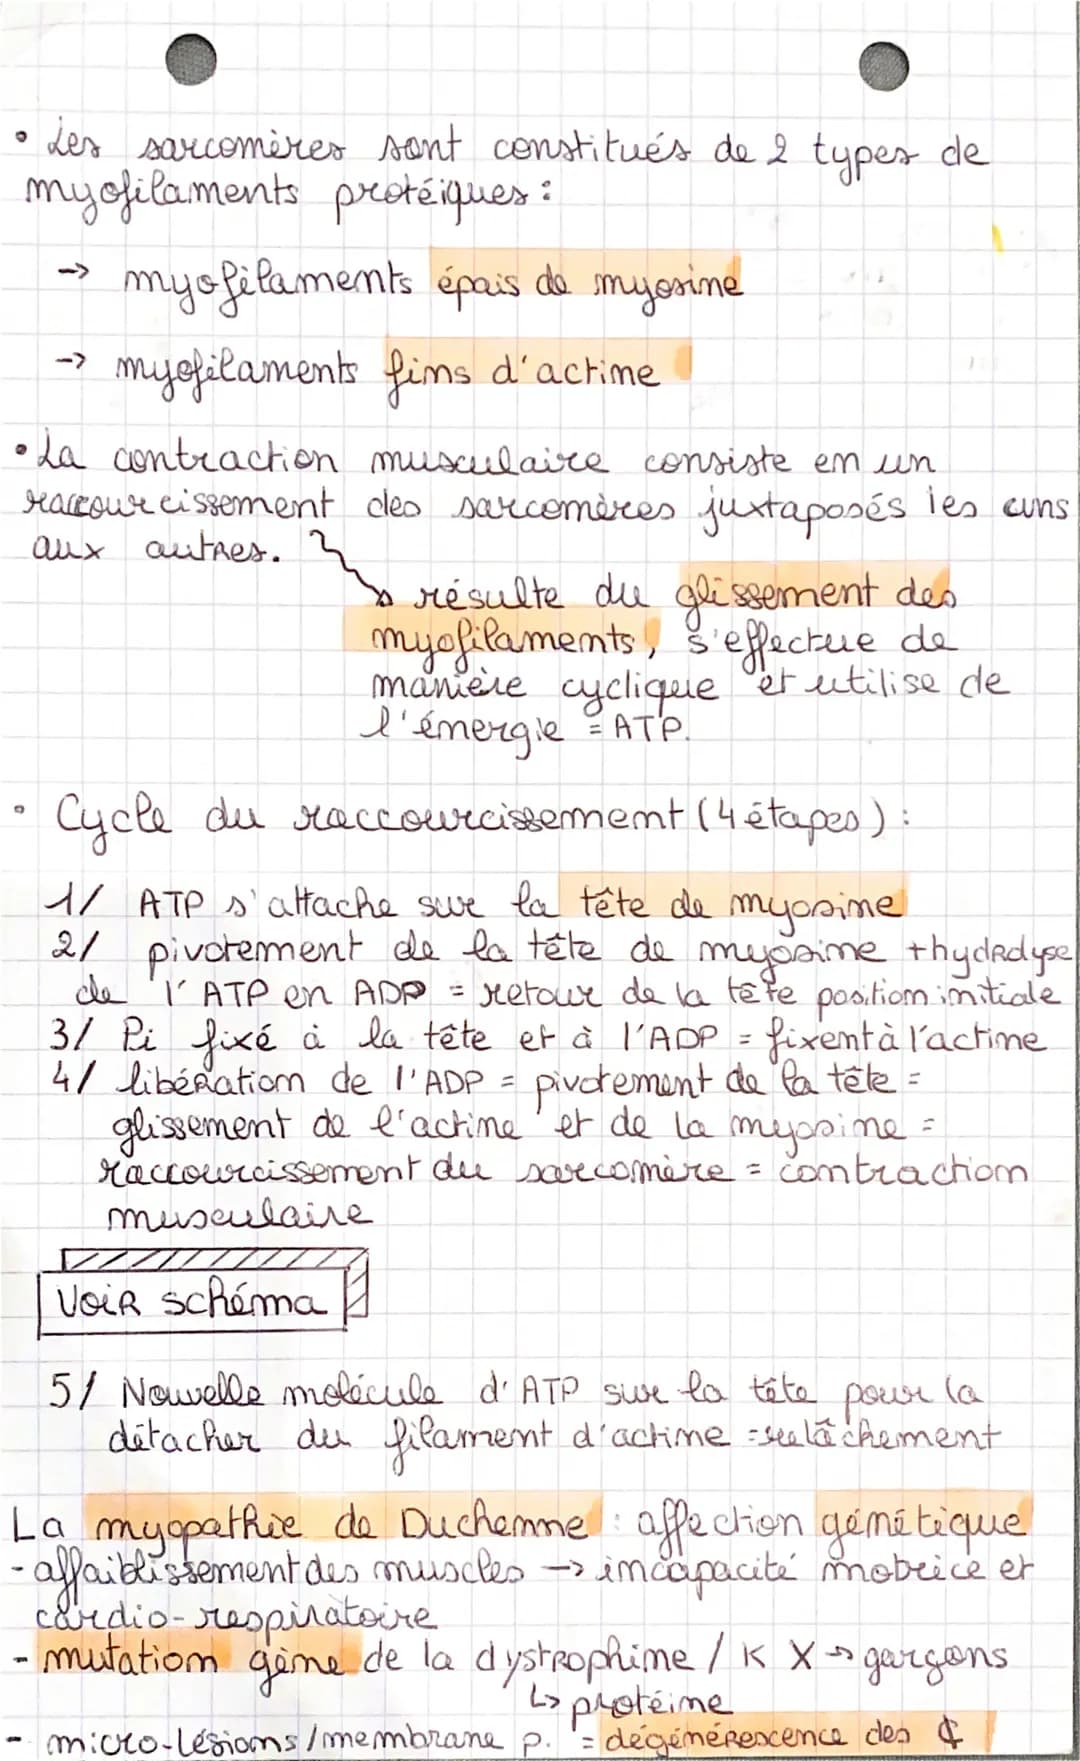 • Les sarcomères sont constitués de 2 types de
myofilaments protéiques :
-> myofilaments épais de myosine
-> myofilaments fins d'actine
• La contraction musculaire consiste en un
raccourcissement des sarcomères juxtaposés les uns
aux autres.
résulte du glissement des
myofilaments, s'effectue de
manière cyclique et utilise de
l'énergie = ATP.
• Cycle du raccourcissement (4 étapes) :
1/ ATP s'attache sur la tête de myosine
2/ pivotement de la tête de myosine + hydrolyse
de l'ATP en ADP = retour de la tête position initiale
3/ Pi fixé à la tête et à l'ADP = fixent à l'actine
4/ libération de l'ADP = pivotement de la tête =
glissement de l'actine et de la myosine =
raccourcissement du sarcomère = contraction
musculaire
VOIR schéma
5/ Nouvelle molécule d'ATP sur la tête pour la
détacher du filament d'actine = relâchement
La myopathie de Duchenne : affection génétique
- affaiblissement des muscles -> incapacité motrice et
cardio-respiratoire
- mutation gène de la dystrophine / K X -> garçons
↳ protéine
- micro-lésions / membrane p. = dégénérescence des ₵